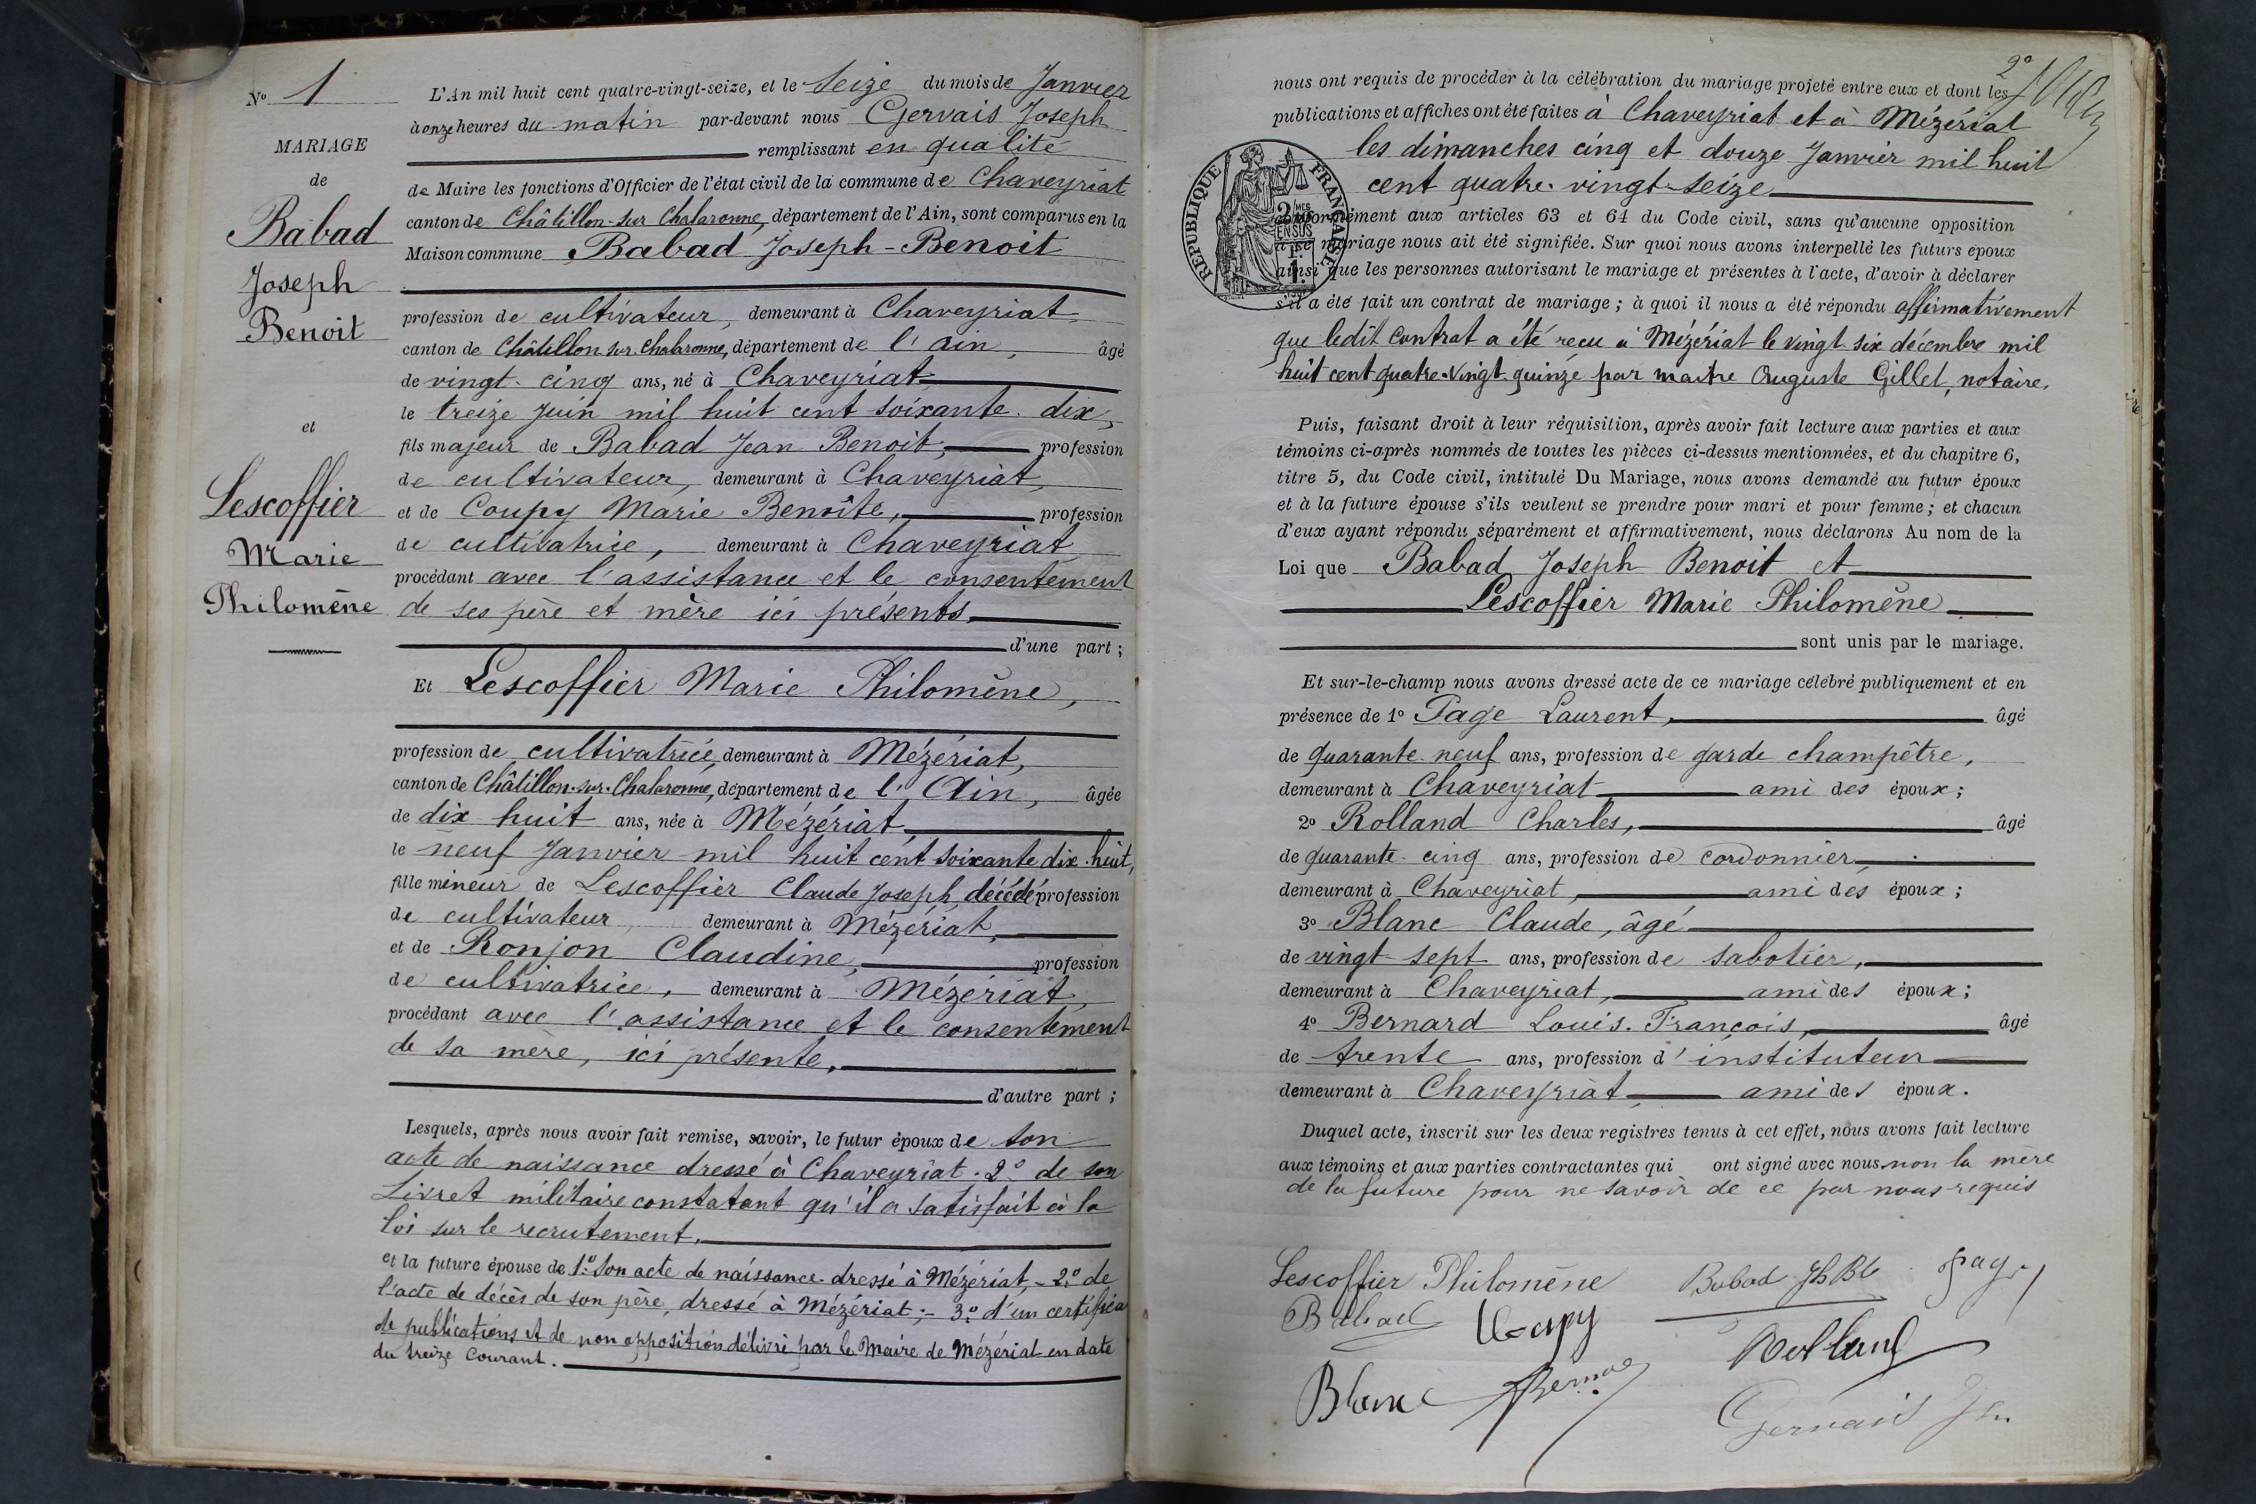 N° 1
MARIAGE
de
Babad
Joseph
Benoit
et
Lescoffier
Marie
Philomène
L'An mil huit cent quatre-vingt-seize, et le Seize du mois de Janvier
à onze heures du matin par-devant nous Gervais Joseph
remplissant en qualité
de Maire les fonctions d'Officier de l'état civil de la commune de Chaveyriat
canton de Châtillon-sur Chalaronne, département de l'Ain, sont comparus en la
Maison commune Babad Joseph-Benoit
profession de cultivateur, demeurant à Chaveyriat
canton de Châtillon sur Chalaronne, département de l'ain, âgé
de vingt-cinq ans, né à Chaveyriat
le treize Juin mil huit cent soixante-dix,
fils majeur de Babad Jean Benoit, profession
de cultivateur, demeurant à Chaveyriat,
et de Coupy Marie Benoîte, profession
de cultivatrice, demeurant à Chaveyriat
procédant avec l'assistance et le consentement
de ses père et mère ici présents,
d'une part ;
Et Lescoffier Marie Philomène,
profession de cultivatrice, demeurant à Mézériat,
canton de Châtillon-sur-Chalaronne, département de l'Ain, âgée
de dix huit ans, née à Mézériat,
le neuf Janvier mil huit cent soixante dix-huit,
fille mineur de Lescoffier Claude Joseph, décédé profession
de cultivateur, demeurant à Mézériat,
et de Ronjon Claudine, profession
de cultivatrice, demeurant à Mézériat,
procédant avec l'assistance et le consentement
de sa mère, ici présente,
d'autre part ;
Lesquels, après nous avoir fait remise, savoir, le futur époux de son
acte de naissance dressé à Chaveyriat. 2° de son
Livret militaire constatant qu'il a satisfait à la
loi sur le recrutement.
et la future épouse de 1° Son acte de naissance dressé à Mézériat, - 2° de
l'acte de décès de son père, dressé à Mézériat ; - 3° d'un certificat
de publications et de non opposition délivré par le Maire de Mézériat en date
du treize courant.
2°
nous ont requis de procéder à la célébration du mariage projeté entre eux et dont les
publications et affiches ont été faites à Chaveyriat et à Mézériat
les dimanches cinq et douze Janvier mil huit
cent quatre-vingt-seize
RÉPUBLIQUE FRANÇAISE
conformément aux articles 63 et 64 du Code civil, sans qu'aucune opposition
à ce mariage nous ait été signifiée. Sur quoi nous avons interpellé les futurs époux
ainsi que les personnes autorisant le mariage et présentes à l'acte, d'avoir à déclarer
s'il a été fait un contrat de mariage ; à quoi il nous a été répondu affirmativement
que ledit contrat a été reçu à Mézériat le vingt six décembre mil
huit cent quatre-vingt-quinze par maitre Auguste Gillet, notaire.
Puis, faisant droit à leur réquisition, après avoir fait lecture aux parties et aux
témoins ci-après nommés de toutes les pièces ci-dessus mentionnées, et du chapitre 6,
titre 5, du Code civil, intitulé Du Mariage, nous avons demandé au futur époux
et à la future épouse s'ils veulent se prendre pour mari et pour femme ; et chacun
d'eux ayant répondu séparément et affirmativement, nous déclarons Au nom de la
Loi que Babad Joseph Benoit et
Lescoffier Marie Philomène
sont unis par le mariage.
Et sur-le-champ nous avons dressé acte de ce mariage célébré publiquement et en
présence de 1° Page Laurent, âgé
de quarante neuf ans, profession de garde champêtre,
demeurant à Chaveyriat ami des époux ;
2° Rolland Charles, âgé
de quarante-cinq ans, profession de cordonnier,
demeurant à Chaveyriat, ami des époux ;
3° Blanc Claude, âgé
de vingt-sept ans, profession de sabotier,
demeurant à Chaveyriat, ami des époux ;
4° Bernard Louis-François, âgé
de trente ans, profession d'instituteur
demeurant à Chaveyriat, ami des époux.
Duquel acte, inscrit sur les deux registres tenus à cet effet, nous avons fait lecture
aux témoins et aux parties contractantes qui ont signé avec nous non la mere
de la future pour ne savoir de ce par nous requis
Lescoffier Philomène Babad Jh Bt Page
Babad Coupy Rolland
Blanc Bernard
Gervais Jh